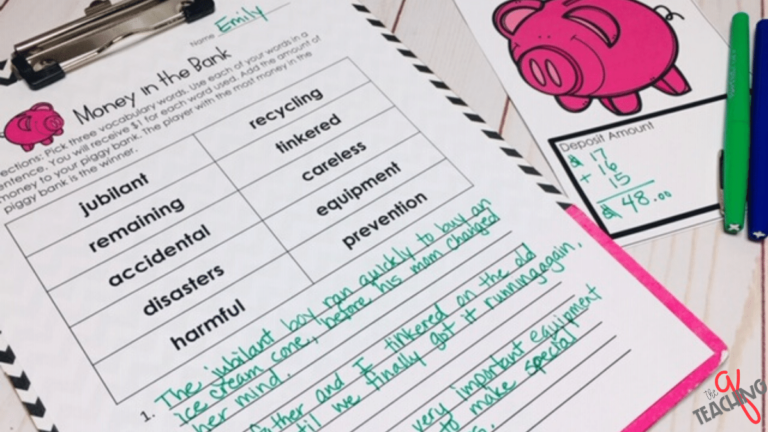 Name Emily
Money in the Bank
Directions: Pick three vocabulary words. Use each of your words in a
sentence. You will receive $1 for each word used. Add the amount of
money to your piggy bank. The player with the most money in the
piggy bank is the winner.
jubilant recycling
remaining tinkered
accidental careless
disasters equipment
harmful prevention
1. The jubilant boy ran quickly to buy an
ice cream cone, before his mom changed
her mind.
and I tinkered on the old
we finally got it running again.
very important equipment
to make special
Deposit Amount
$ 17
+ 16
15
$ 48.00
the
TEACHING